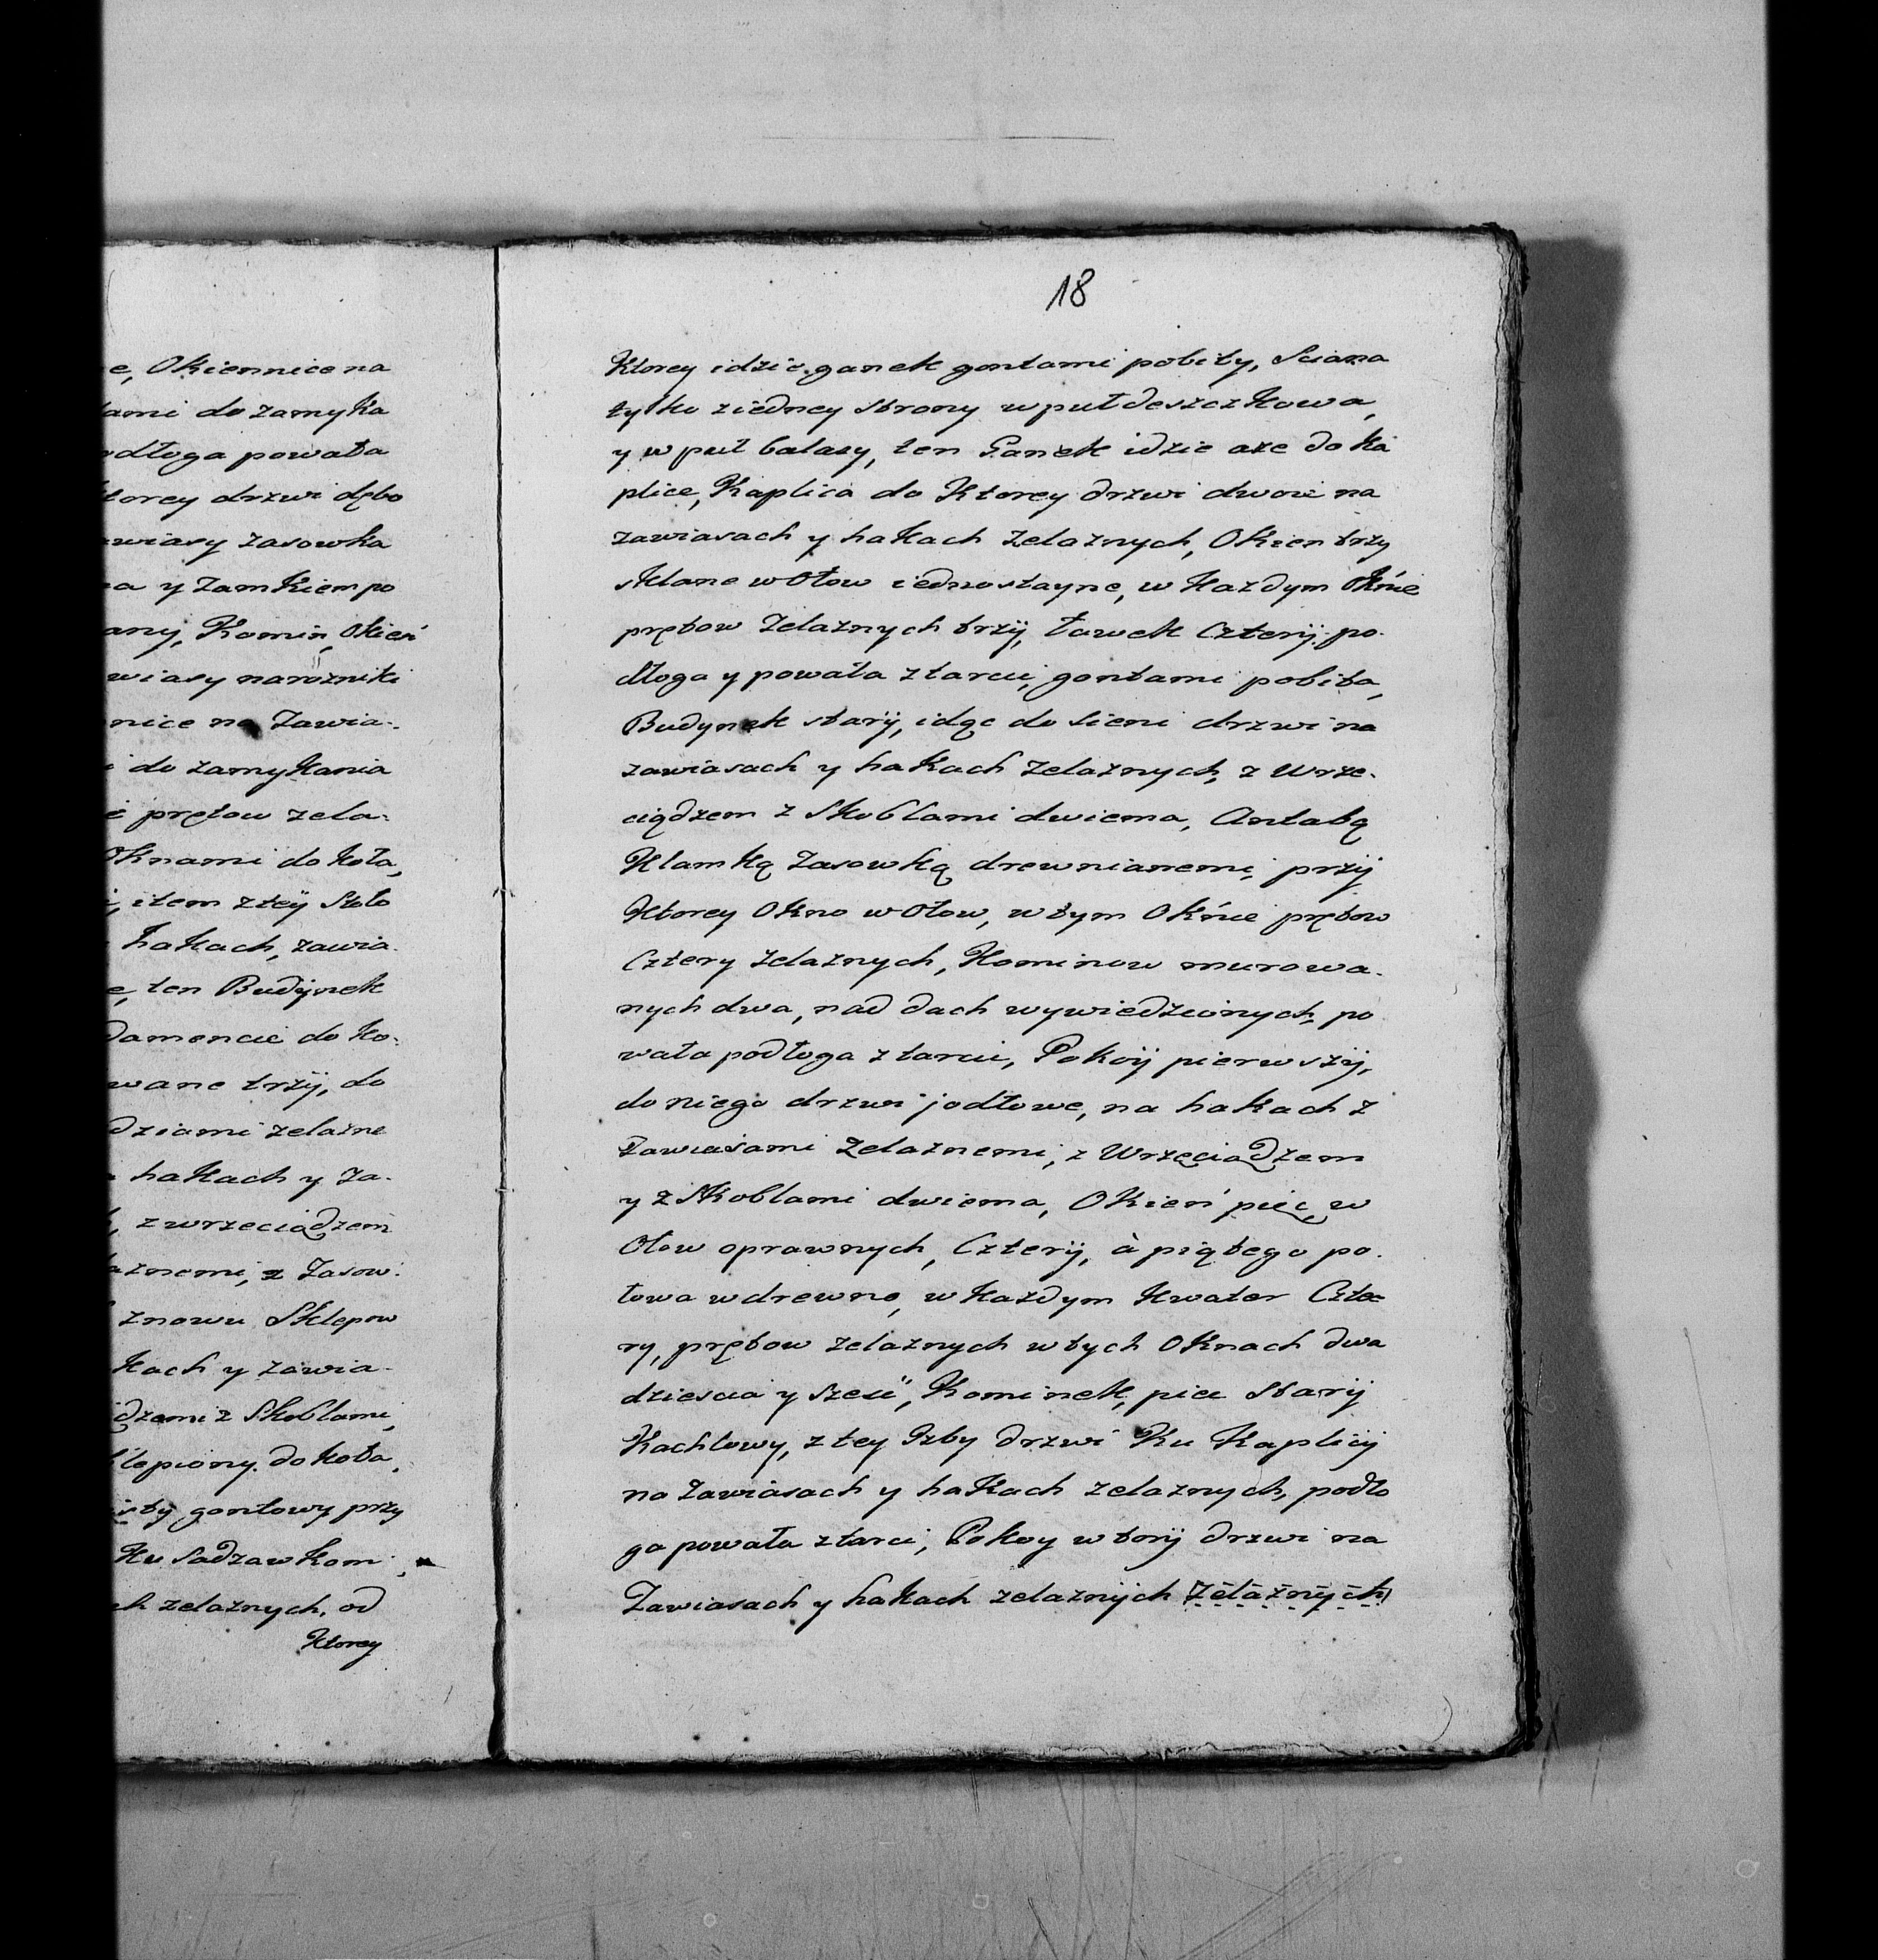 e, Okiennice na
tami do zamyka
odłoga powała
ktorey drzwi dębo
awiasy zasowka
na y zamkiem po
any, Komin, Okień
wiasy narożniki
nice na Zawia-
i do zamykania
e prętow zela-
Oknami do koła,
item z teÿ Sto
hakach, zawia-
e, ten Budÿnek
damencie do Ko-
wane trzÿ, do
dziami żelazne
hakach y Za-
z wrzeciądzem
aznemi, z Zasow-
znowu Sklepow
kach y zawia-
ądzemi z Skoblami,
lepiony do koła,
isty gontowy przy
Ku Sadzawkom
ch zelaznych, od
Ktorey
18
Ktorey idzie ganek gontami pobity, Sciana
tylko ziedney strony w puł deszczkowa,
y w puł balasy, ten Ganek idzie aze do Ka
plice, Kaplica do Ktorey drzwi dwoie na
zawiasach y hakach Zelaznych, Okien trzy
sklane w Ołow iednostayne, w Kazdym Oknie
prętow Zelaznych trzÿ, Ławek Czterÿ, po-
dłoga y powała z tarcic, gontami pobita,
Budynek starÿ, idąc do Sieni drzwi na
zawiasach y hakach Zelaznych, z Wrze-
ciądzem z Skoblami dwiema, Antabą
Klamką Zasowką drewnianemi, przÿ
Ktorey Okno w Ołow, w tym Oknie prętow
Cztery Zelaznych, Kominow murowa-
nych dwa, nad dach wywiedzionych, po
wała podłoga z tarcic, Pokoÿ pierwszÿ,
do niego drzwi jodłowe, na hakach z
Zawiasami Zelaznemi, z Wrzeciądzem
y z Skoblami dwiema, Okień pięc w
Ołow oprawnych, Czterÿ, à piątego po-
łowa w drewno, w Kazdym Kwater Czte-
ry, prętow zelaznych w tych Oknach dwa
dziescia y szesć, Kominek, piec Starÿ
Kachlowy, z tey Izby drzwi Ku Kaplicÿ
na Zawiasach y hakach zelaznych, podło
ga powała z tarcic, Pokoy wtorÿ drzwi na
Zawiasach y hakach zelaznÿch zelaznÿch